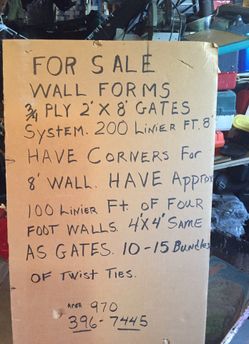 FOR SALE
WALL FORMS
3/4 PLY 2'X8' GATES
SYSTEM. 200 LINIER FT. 8'
HAVE CORNERS FOR
8' WALL. HAVE APPROX
100 LINIER Ft. OF FOUR
FOOT WALLS. 4'X4' SAME
AS GATES. 10-15 BUNdles
OF TWIST TIES.
AREA 970
396-7445